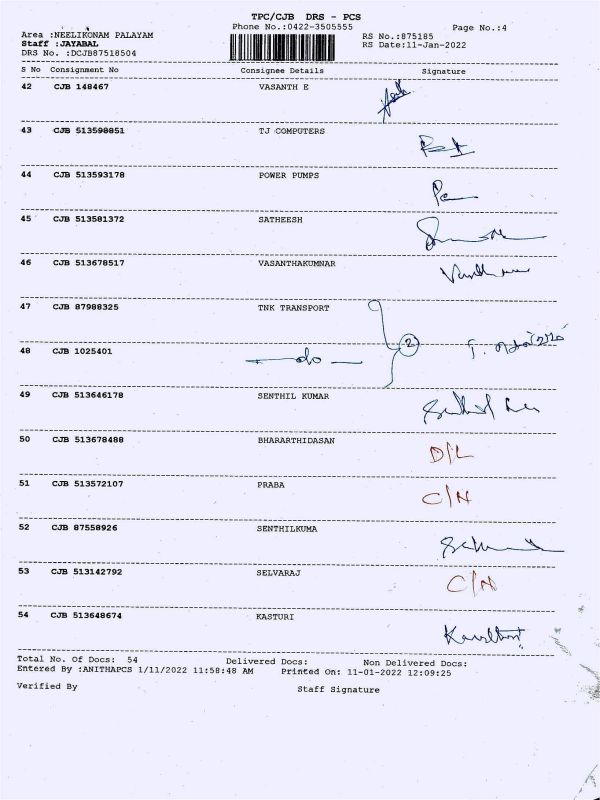 TPC/CJB DRS - PCS
Phone No.:0422-3505555 Page No.:4
Area :NEELIKONAM PALAYAM RS No.:875185
Staff :JAYABAL RS Date:11-Jan-2022
DRS No. :DCJB87518504
S No Consignment No Consignee Details Signature
42 CJB 148467 VASANTH E
43 CJB 513598851 TJ COMPUTERS
44 CJB 513593178 POWER PUMPS
45 CJB 513581372 SATHEESH
46 CJB 513678517 VASANTHAKUMNAR
47 CJB 87988325 TNK TRANSPORT
2
48 CJB 1025401 do
49 CJB 513646178 SENTHIL KUMAR
50 CJB 513678488 BHARARTHIDASAN D/L
51 CJB 513572107 PRABA C/N
52 CJB 87558926 SENTHILKUMA
53 CJB 513142792 SELVARAJ C/N
54 CJB 513648674 KASTURI
Total No. Of Docs: 54 Delivered Docs: Non Delivered Docs:
Entered By :ANITHAPCS 1/11/2022 11:58:48 AM Printed On: 11-01-2022 12:09:25
Verified By Staff Signature